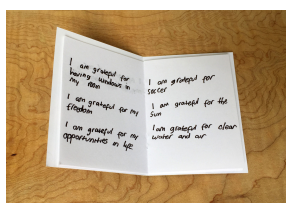 I am grateful for
having windows in
my room
I am grateful for my
freedom
I am grateful for my
opportunities in life
I am grateful for
soccer
I am grateful for the
sun
I am grateful for clear
water and air